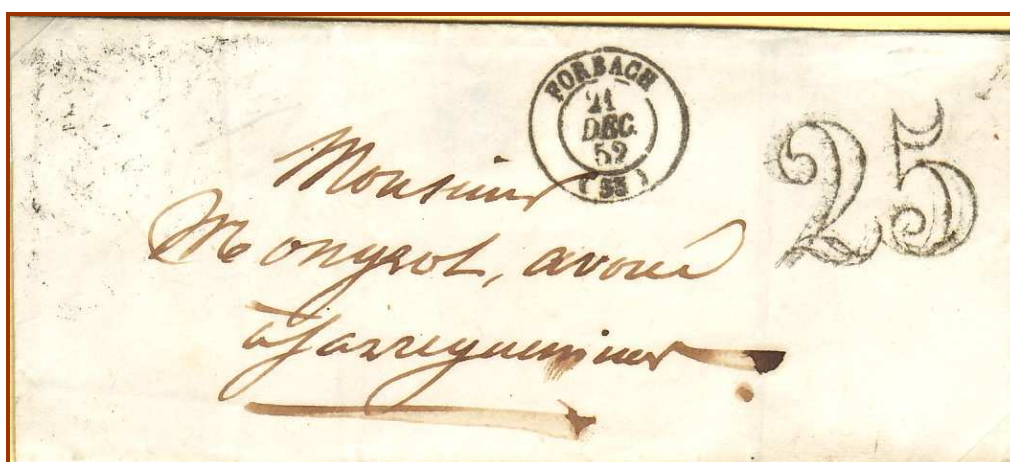 FORBACH
21
DEC.
52
(55)
25
Monsieur
Mongeot, avoué
à Sarreguemines